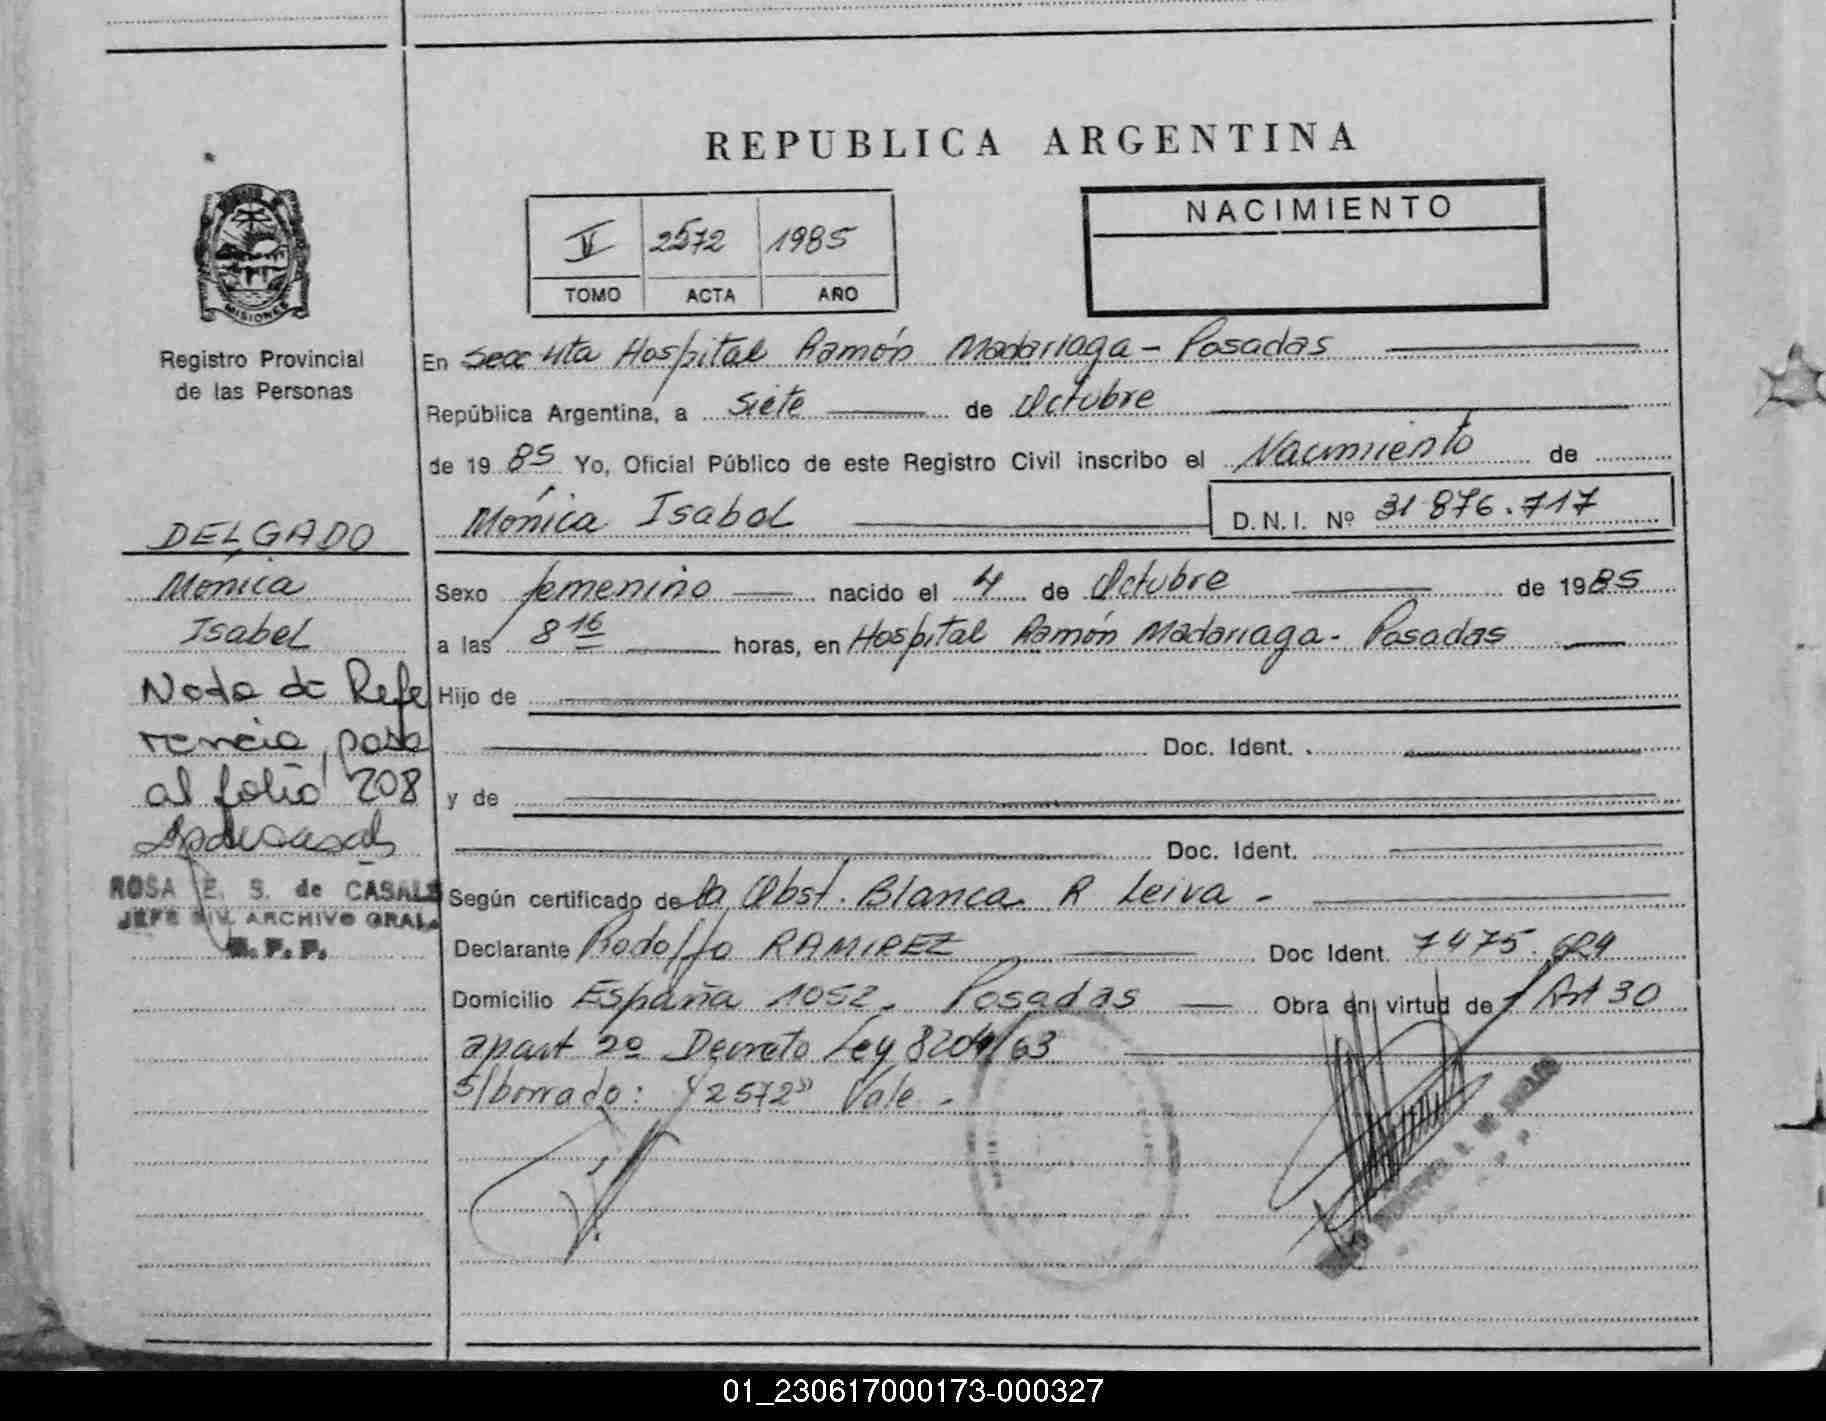 REPUBLICA ARGENTINA
MISIONES
Registro Provincial
de las Personas
II 2572 1985
TOMO ACTA AÑO
NACIMIENTO
En Secc 4ta Hospital Ramón Madariaga - Posadas
República Argentina, a siete de Octubre
de 1985 Yo, Oficial Público de este Registro Civil inscribo el Nacimiento de
Mónica Isabel D.N.I. Nº 31 876.717
DELGADO
Mónica
Isabel
Nota de Refe
rencia, pasa
al folio 208
ROSA E. S. de CASALS
JEFE DIV. ARCHIVO GRAL.
R. P. P.
Sexo femenino nacido el 4 de Octubre de 1985
a las 8 16 horas, en Hospital Ramón Madariaga - Posadas
Hijo de
Doc. Ident.
y de
Doc. Ident.
Según certificado de la Obst. Blanca R Leiva -
Declarante Rodolfo RAMIREZ Doc Ident. 7475.624
Domicilio España 1052. Posadas Obra en virtud de Art 30
apart 2º Decreto Ley 8204/63
S/borrado: "2572" Vale -
01_230617000173-000327